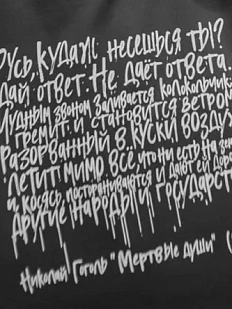 Русь, куда ж несёшься ты?
Дай ответ. Не даёт ответа.
Чудным звоном заливается колокольчик;
гремит и становится ветром
Разорванный в куски воздух
летит мимо всё что ни есть на зем
и, косясь, постораниваются и дают ей дорог
другие народы и государст
Николай Гоголь "Мёртвые души" (